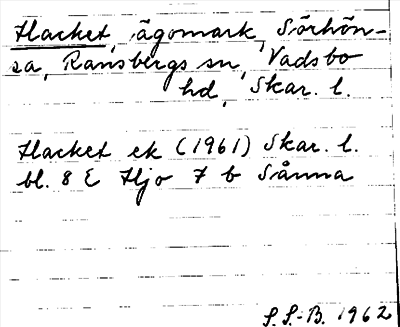 Hacket, ägomark, Sörhön-
sa, Ransbergs sn, Vadsbo
hd, Skar. l.
Hacket ek (1961) Skar. l.
bl. 8 E Hjo 7 b Sånna
S. S.-B. 1962